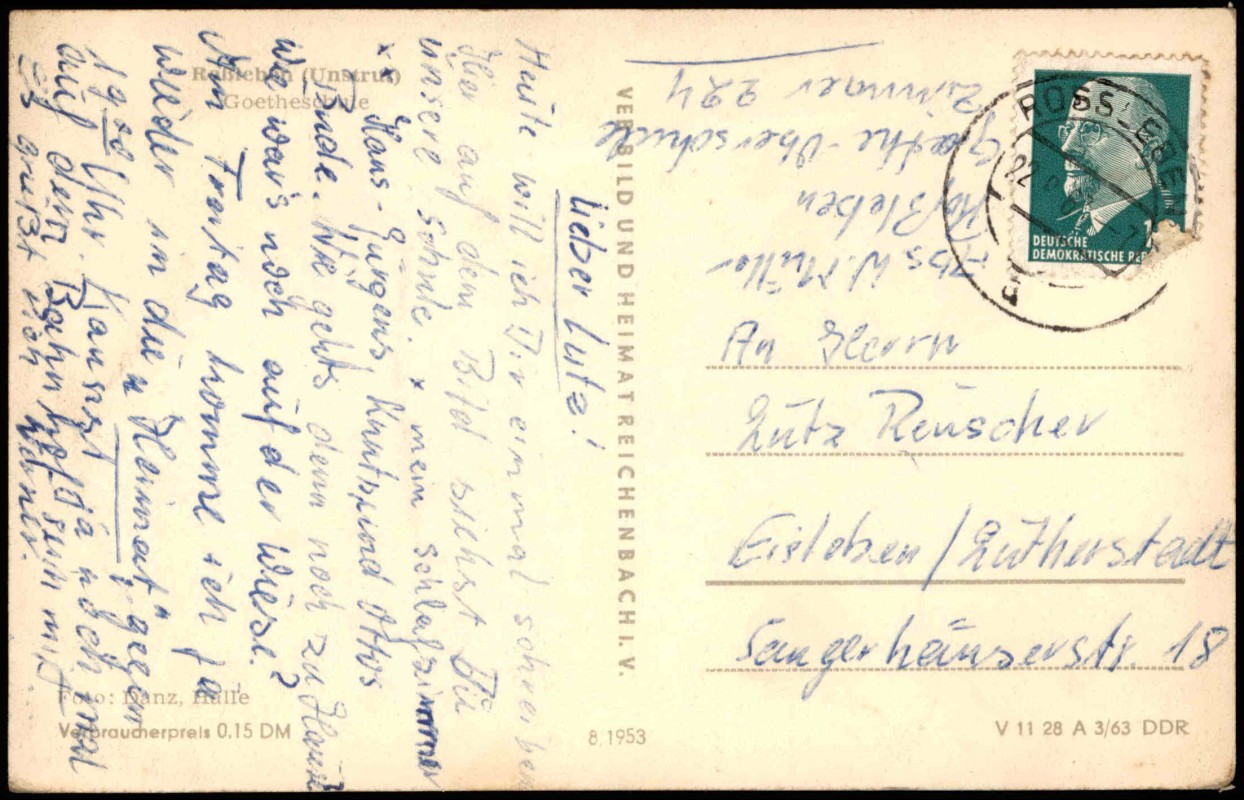 Roßleben (Unstrut)
Goetheschule
Lieber Lutz!
Heute will ich Dir einmal schreiben
Hier auf dem Bild siehst Du
unsere Schule. x mein Schlafzimmer
xx Hans-Jürgens, Knuts und Ottos
Bude. Wie gehts denn noch zu Hause
wie war's noch auf der Wiese?
Am Freitag komme ich ja
wieder in die "Heimat", gegen
19 Uhr. Kannst ja noch mal
auf dem Bahnhof sein mit
Es grüßt Dich
Foto: Danz, Halle
Verbraucherpreis 0,15 DM
VERO BILD UND HEIMAT REICHENBACH I. V.
8, 1953
Abs. W. Müller
Roßleben
Goethe-Oberschule
Zimmer 224
ROSSLEBEN
22
DEUTSCHE
DEMOKRATISCHE REP
An Herrn
Lutz Reuscher
Eisleben/Lutherstadt
Sangerhäuserstr. 18
V 11 28 A 3/63 DDR